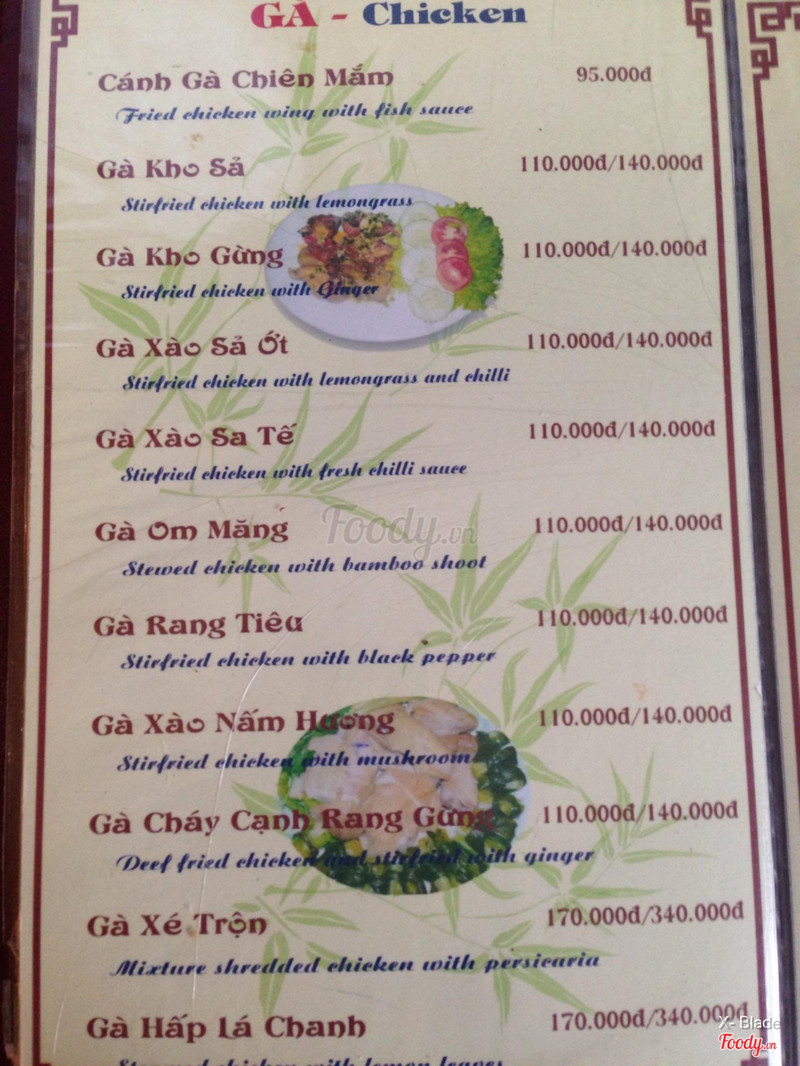 GÀ - Chicken
Cánh Gà Chiên Mắm 95.000đ
Fried chicken wing with fish sauce
Gà Kho Sả 110.000đ/140.000đ
Stirfried chicken with lemongrass
Gà Kho Gừng 110.000đ/140.000đ
Stirfried chicken with Ginger
Gà Xào Sả Ớt 110.000đ/140.000đ
Stirfried chicken with lemongrass and chilli
Gà Xào Sa Tế 110.000đ/140.000đ
Stirfried chicken with fresh chilli sauce
Foody.vn
Gà Om Măng 110.000đ/140.000đ
Stewed chicken with bamboo shoot
Gà Rang Tiêu 110.000đ/140.000đ
Stirfried chicken with black pepper
Gà Xào Nấm Hương 110.000đ/140.000đ
Stirfried chicken with mushroom
Gà Cháy Cạnh Rang Gừng 110.000đ/140.000đ
Deef fried chicken and stirfried with ginger
Gà Xé Trộn 170.000đ/340.000đ
Mixture shredded chicken with persicaria
Gà Hấp Lá Chanh 170.000đ/340.000đ
chicken with lemon leaves
X- Blade
Foody.vn